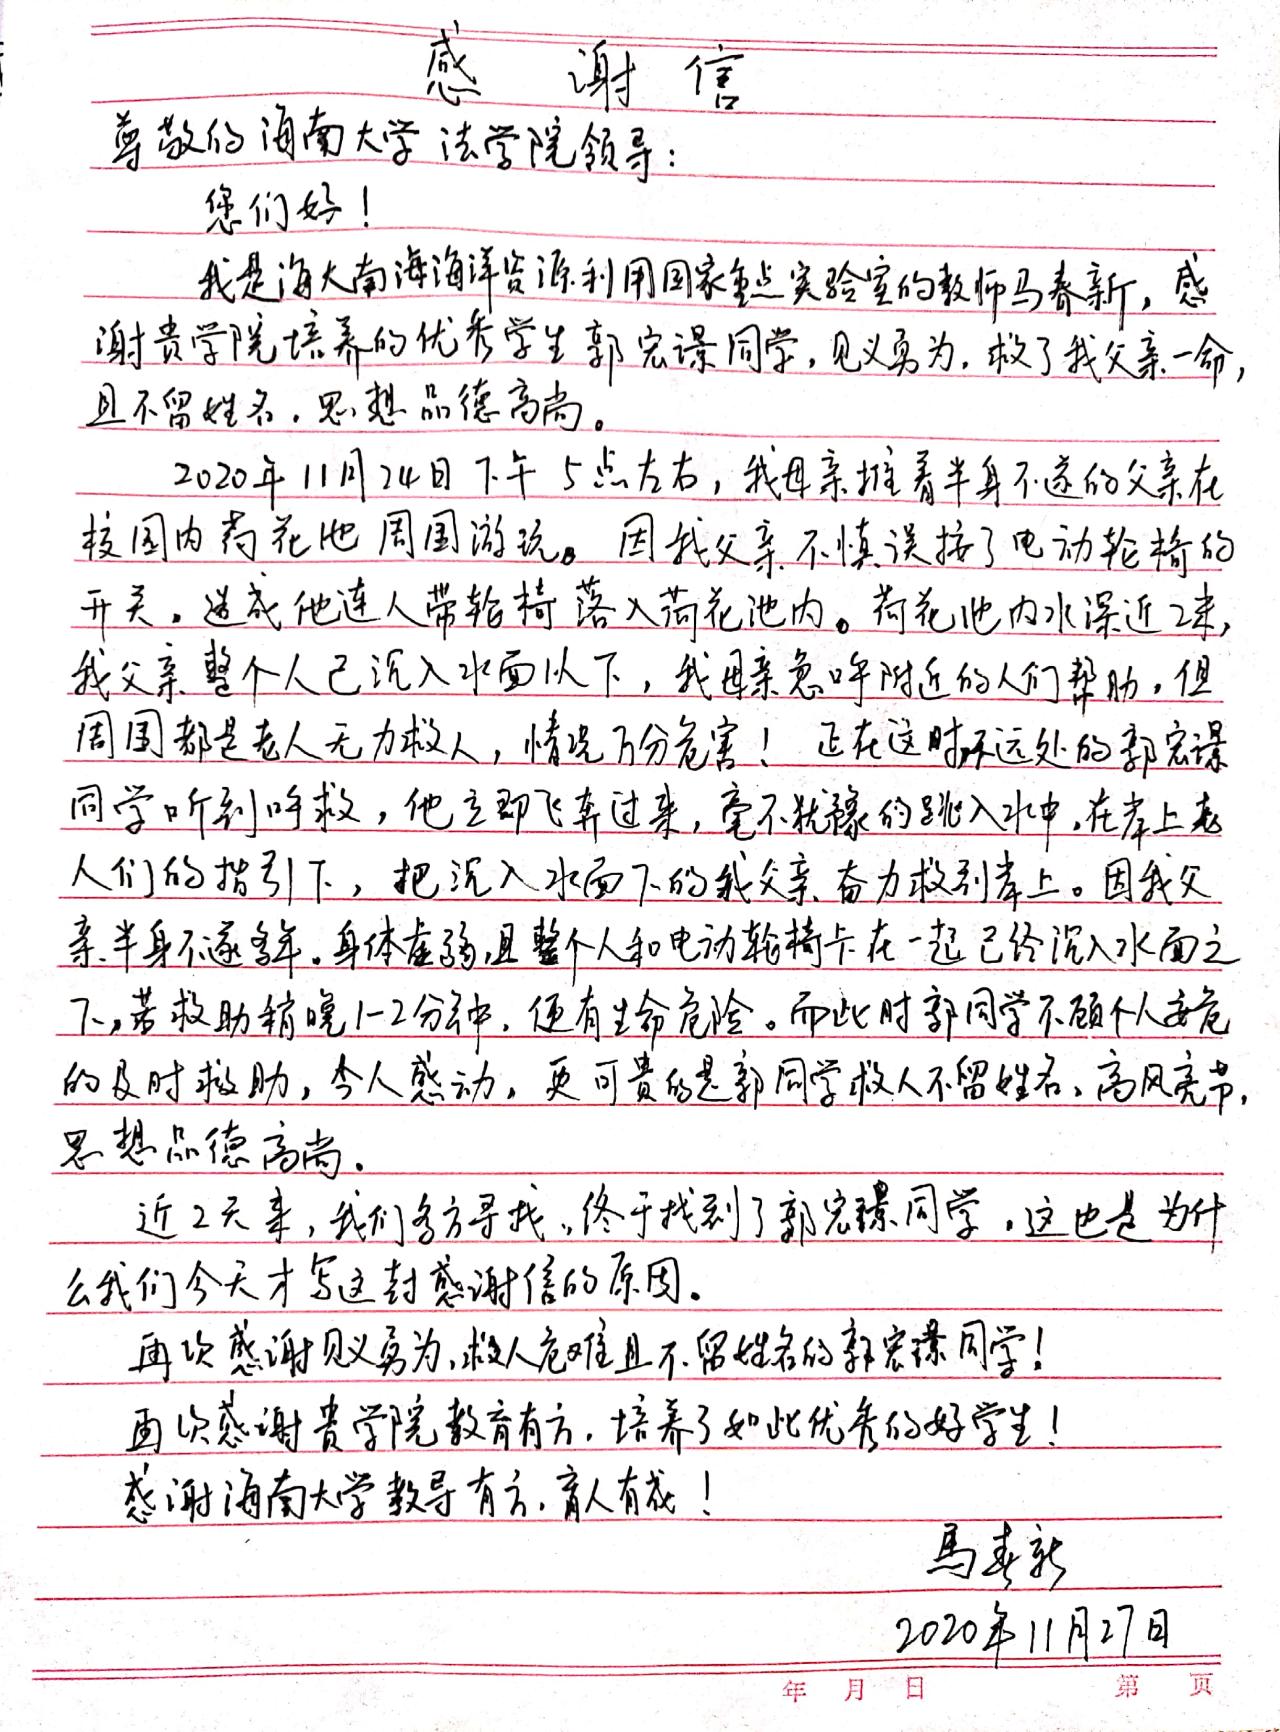 感谢信
尊敬的海南大学法学院领导：
您们好！
我是海大南海海洋资源利用国家重点实验室的教师马春新，感
谢贵学院培养的优秀学生郭宏璟同学，见义勇为，救了我父亲一命，
且不留姓名，思想品德高尚。
2020年11月24日下午5点左右，我母亲推着半身不遂的父亲在
校园内荷花池周围游玩。因我父亲不慎误按了电动轮椅的
开关，造成他连人带轮椅落入荷花池内。荷花池内水深近2米，
我父亲整个人已沉入水面以下，我母亲急呼附近的人们帮助，但
周围都是老人无力救人，情况万分危害！正在这时不远处的郭宏璟
同学听到呼救，他立即飞奔过来，毫不犹豫的跳入水中，在岸上老
人们的指引下，把沉入水面下的我父亲奋力救到岸上。因我父
亲半身不遂多年，身体虚弱，且整个人和电动轮椅卡在一起已经沉入水面之
下，若救助稍晚1-2分钟，便有生命危险。而此时郭同学不顾个人安危
的及时救助，令人感动，更可贵的是郭同学救人不留姓名，高风亮节，
思想品德高尚。
近2天来，我们多方寻找，终于找到了郭宏璟同学，这也是为什
么我们今天才写这封感谢信的原因。
再次感谢见义勇为，救人危难且不留姓名的郭宏璟同学！
再次感谢贵学院教育有方，培养了如此优秀的好学生！
感谢海南大学教导有方，育人有成！
馬春新
2020年11月27日
年 月 日 第 页